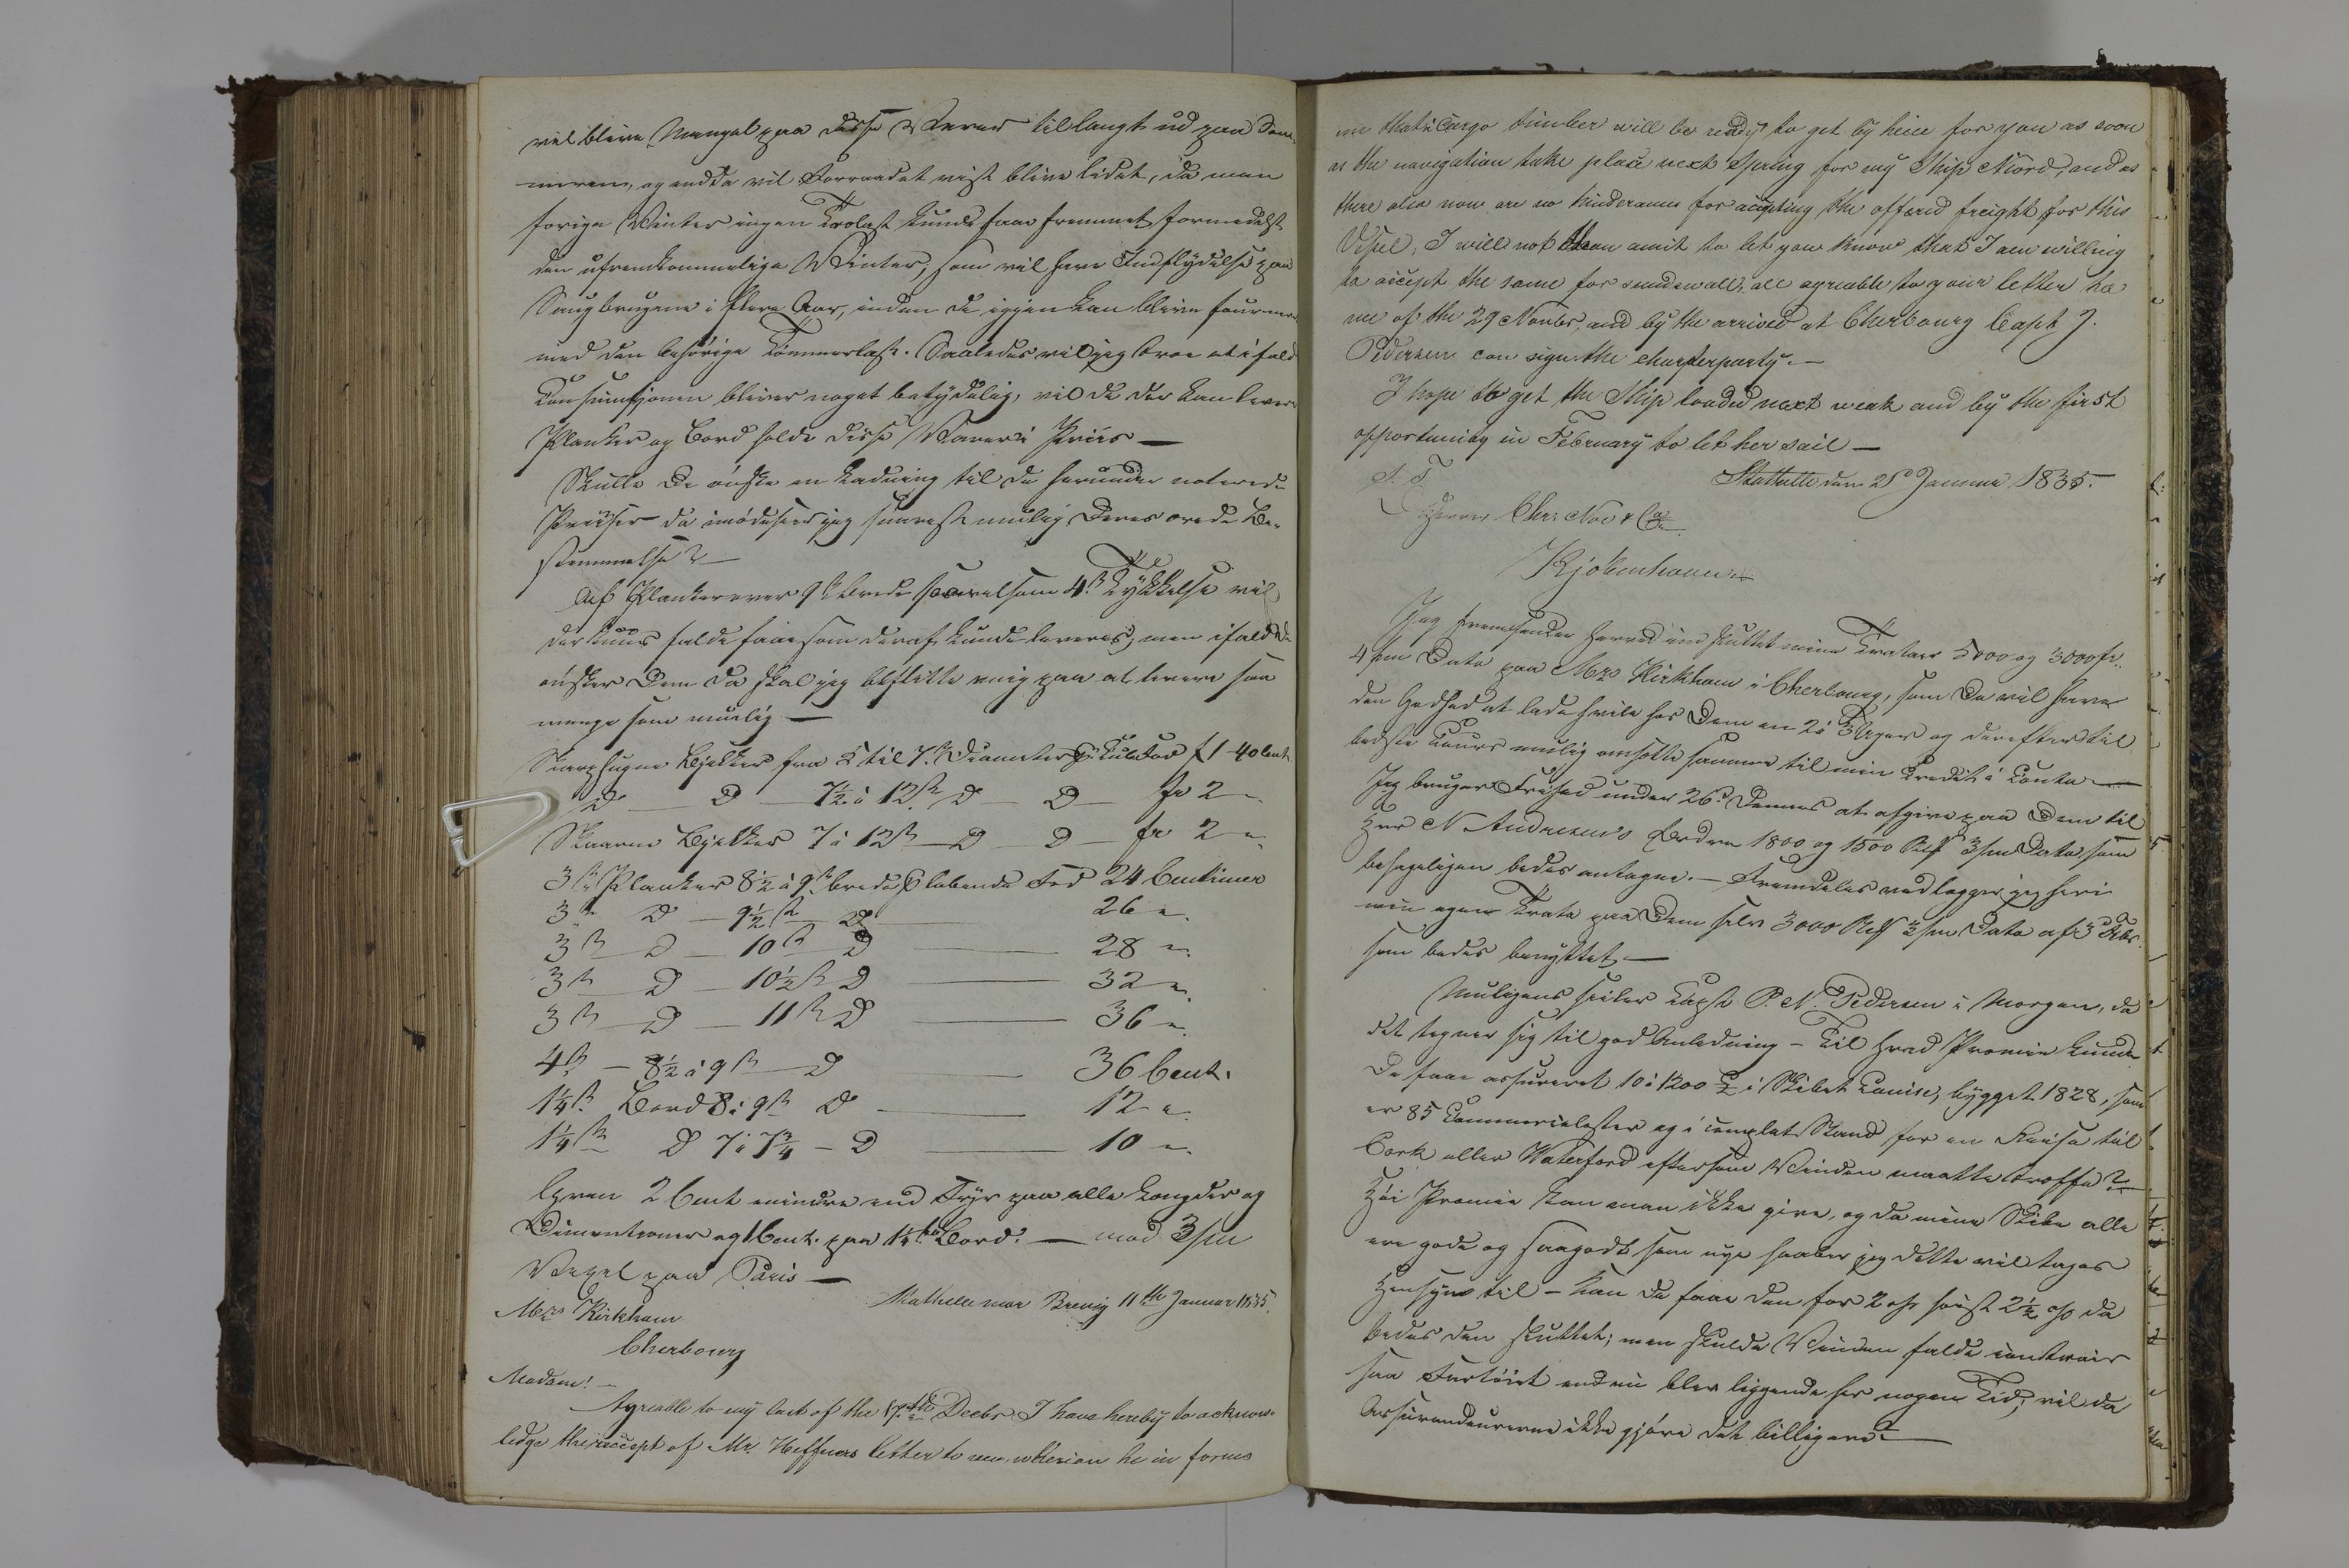 vil blive Mangel paa disse Varer til langt ud paa Som-
meren, og endda vil Forraadet vist blive lidet, da man
forige Winter ingen Trolast kunde faae fremmet formedelst
den ufremkommelige Winter, som vil have Indflydelse paa
Saugbrugene i flere Aar, inden de igjen kan blive
med den behørige Tømmerlast. Saaledes vil jeg troe at ifald
Consumtjonen bliver noget betydelig, vil de der kan levere
Planker og Bord holde disse Varer i Priis —
Skulle De ønske en Ladning til de herunder noterede
Priiser da imødeseer jeg snarest mulig Deres ærede Be-
stemmelse? —
Af Planker over 9 brede saavelsom 4" Tykkelse vil
der kuns falde faae som deraf kunde leveres, men ifald De
ønsker Dem da skal jeg beflitte mig paa at levere saa
mange som muelig —
Skarphugne Bjelker fra 5 til 7" Diameter Cubicfod f 1-40 Cent
D — D — 7½ à 12" D — D — fr 2 —
Skaarne Bjelker 7 à 12" — D — D — fr 2 "
3" Planker 8½ à 9" brede løbende Fod 24 Centimer
3" D — 9½" D — 26 "
3" — D — 10" D — 28 "
3" — D — 10½" D — 32 "
3" — D — 11" D — 36 "
4" — 8½ à 9" — D — 36 Cent.
1¼" Bord 8 à 9" D — 12 "
1¼" D 7 à 7¾ — D — 10 "
Gran 2 Cent mindre end Fyr paa alle Længder og
Dimentioner og 1 Cent. paa 1¼" Bord. — mod 3/m
Vexel paa Paris —
Mrs Kirkham Stathelle near Brevig 11th Januar 1835.
Cherbourg
Madam! —
Agreable to my last of the 17th Decbr I have hereby to acknow-
ledge the reccept of Mr. Heffners letter to me, wherion he in forms
me that a Cargo timber will be ready to get by heice for you as soon
as the navigation take place next Spring for my Ship Niord, and as
there also now are no hinderances for accepting the offered freight for this
Vessel, I will not then amit to let you know that I am willing
to accept the same for seudewall, all agreable to your letter to
me of the 29 Novbr, and by the arrived at Cherbourg Capt J.
Pedersen can sign the charterparty. —
I hope to get the Ship loaded next week and by the first
opportunity in February to let her sail —
S. T. Stathelle den 21de Januar 1835.
Herrer Chr: Noe & Co
Kjöbenhavn
Jeg fremsender herved indsluttet mine Trataer 5000 og 3000 fr.
4/m Dato paa Mrs Kirkham i Cherbourg, som De vil have
den Godhed at lade hvile hos Dem en 2 à 3 Uger og derefter til
bedste Cours mulig omsætte samme til min Credit i Conto —
Jeg bruger Frihed under 26de Dennes at afgive paa Dem til
Hr N. Andresens Ordre 1800 og 1500 3/m Dato, som
behageligen bedes antagne. — Fremdeles vedlægger jeg heri
min egen Trata paa Dem selv 3000 3/m Dato af 3 Febr.
som bedes benyttet —
Muligens seiler Capt P. N. Pedersen i Morgen, da
det tegner sig til god Anledning — Til hvad Præmie kunde
De faae assureret 10 à 1200 £ i Skibet Louise, bygget 1828, som
er 85 Commercelæster og i complet Stand for en Reise til
Cork eller Waterford eftersom Vinden maatte træffe? —
Høi Præmie kan man ikke give, og da mine Skibe alle
ere gode og saagodt som nye haaber jeg dette vil tages
Hensyn til — Kan De faae den for 2 høist 2½ % da
bedes den sluttet; men skulde Vinden falde contrair
saa Fartöiet endnu blev liggende her nogen Tid, vil da
Assurandeurerne ikke gjøre det billigere? —